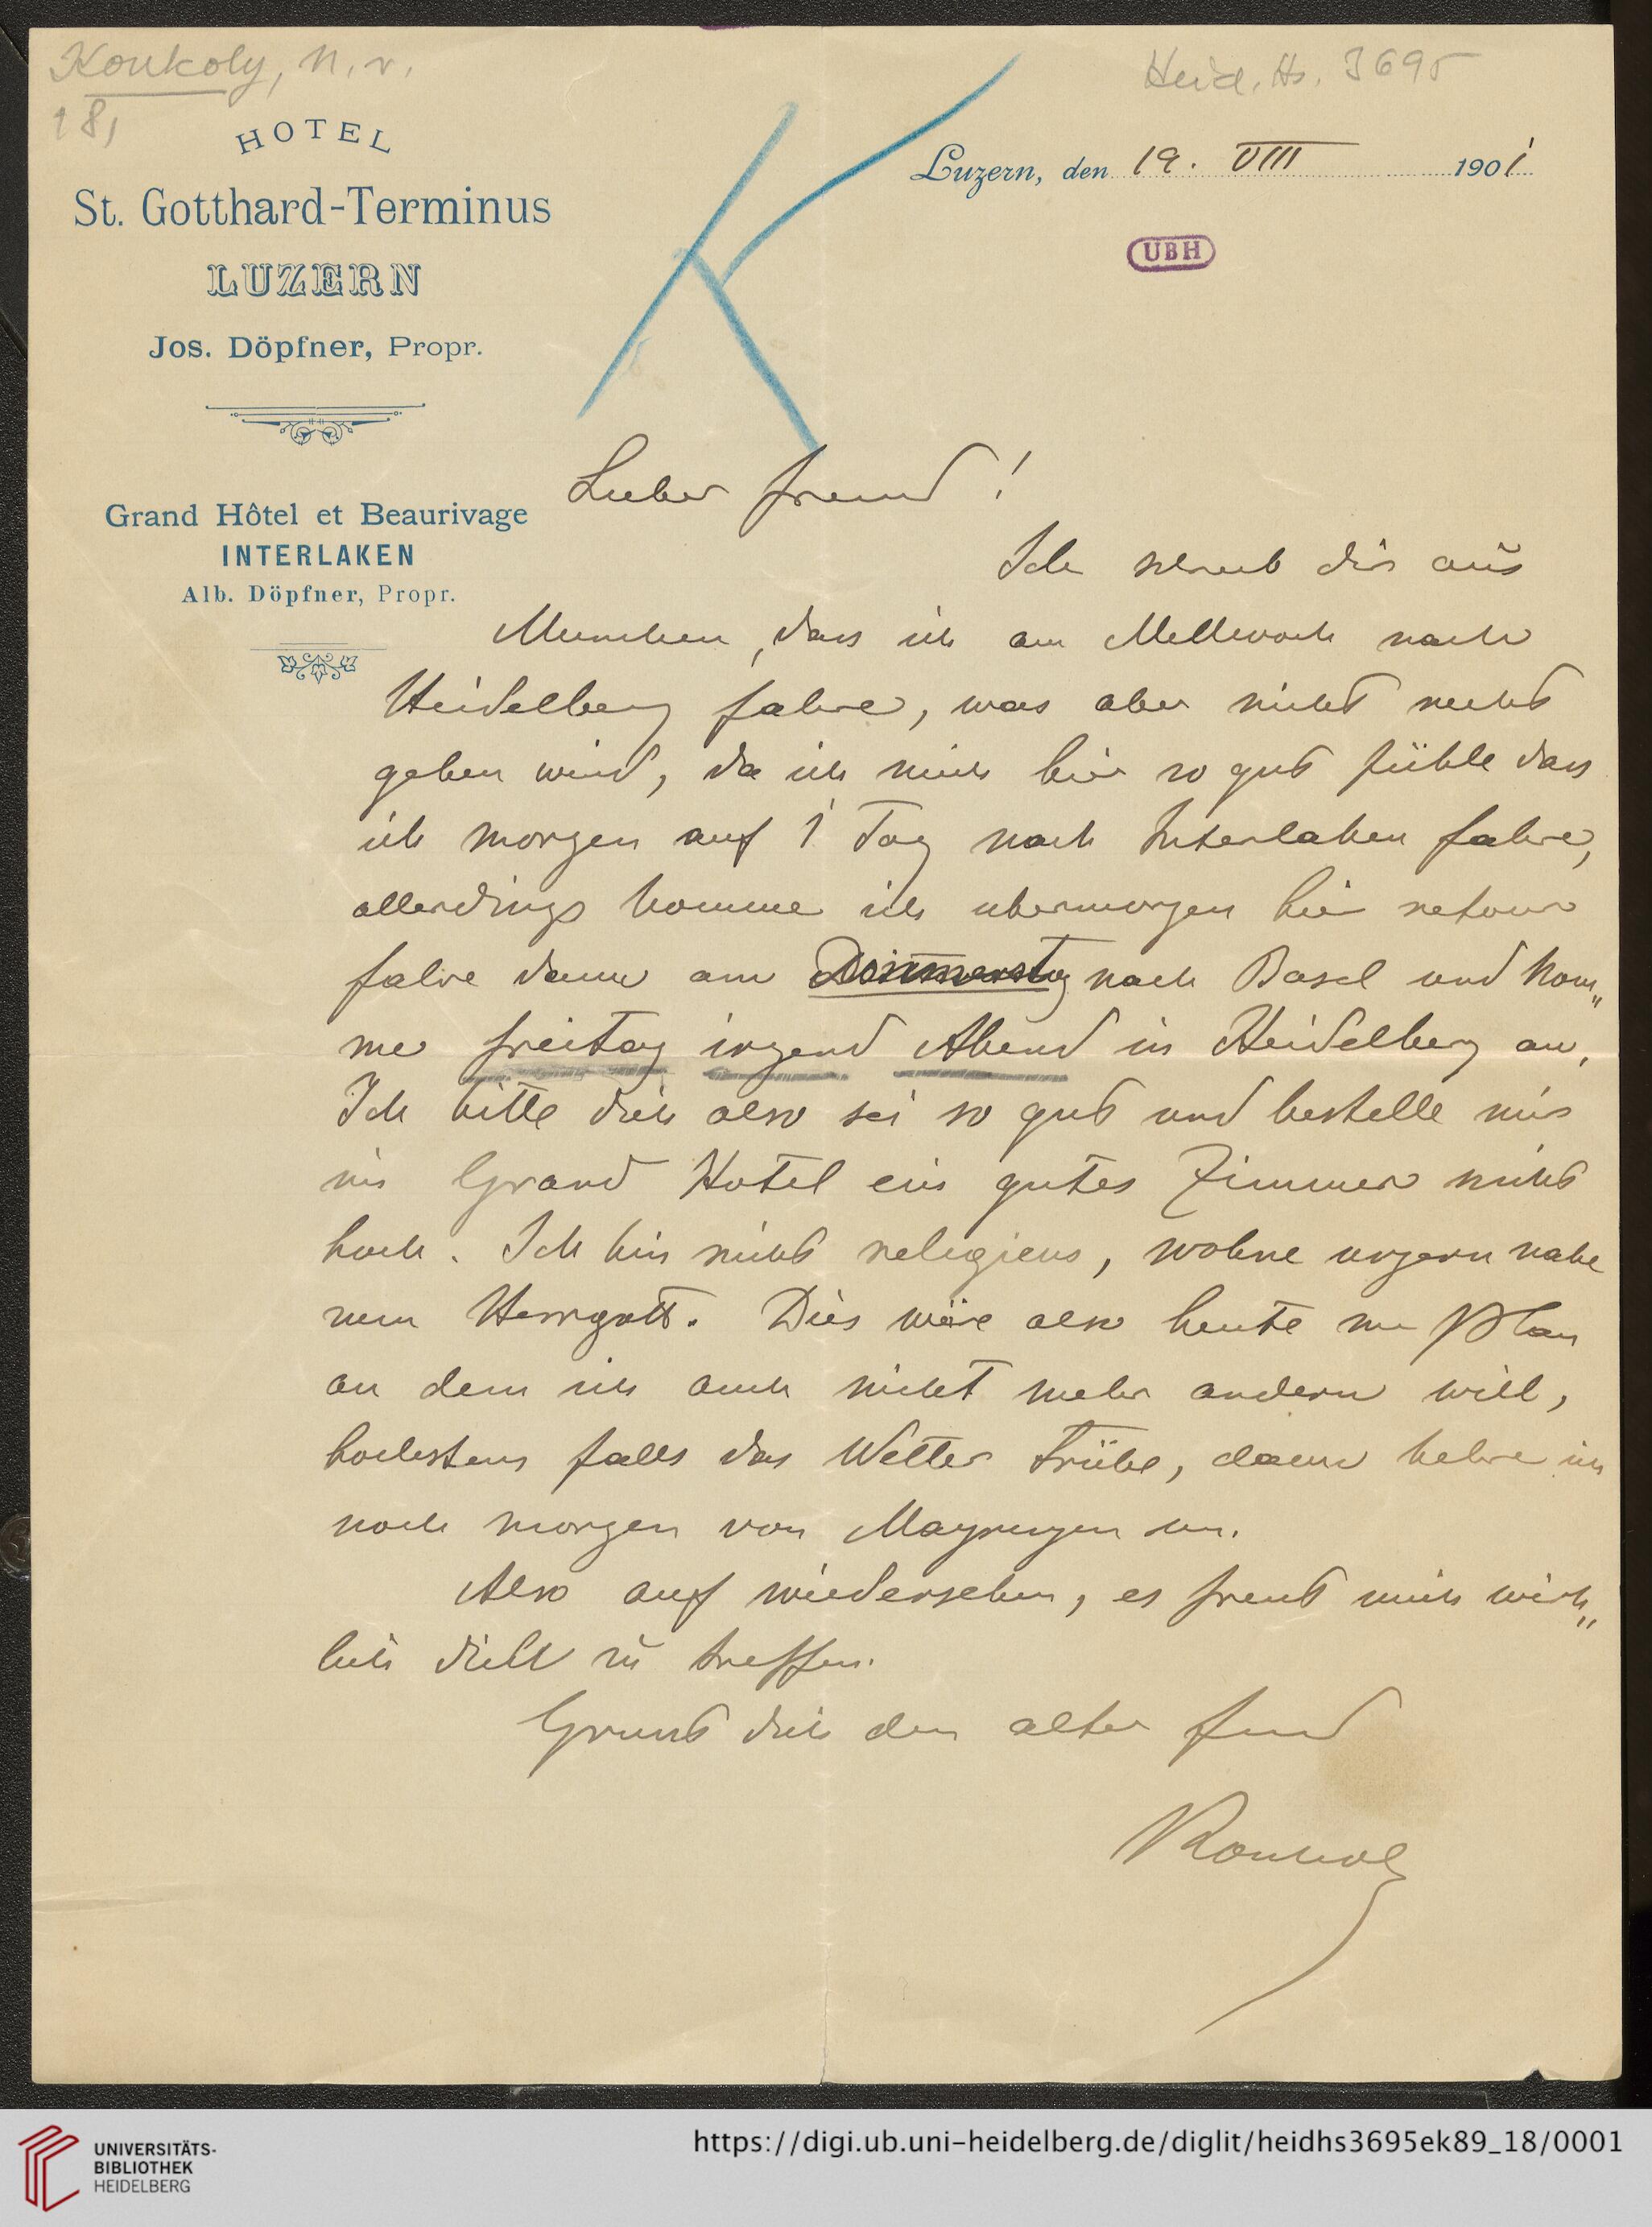 Konkoly, N. v.
18,
Heid. Hs. 3695
HOTEL
St. Gotthard-Terminus
LUZERN
Jos. Döpfner, Propr.
Luzern, den 19. VIII 1901
UBH
Grand Hôtel et Beaurivage
INTERLAKEN
Alb. Döpfner, Propr.
Lieber Freund!
Ich schrieb dir aus
Munchen, dass ich am Mettwoch nach
Heidelberg fahre, was aber nicht recht
gehen wird, da ich mich hier so gut fühle dass
ich morgen auf 1 Tag nach Interlaken fahre,
allerdings komme ich ubermorgen hier retour
fahre dann am Donnerstag nach Basel und kom„
me Freitag irgend Abend in Heidelberg an.
Ich bitte dich also sei so gut und bestelle mir
im Grand Hotel ein gutes Zimmer nicht
hoch. Ich bin nicht religieus, wohne ungern nahe
Herrgott. Dies wäre also heute Plan
an dem ich auch nicht mehr andern will,
hochstens falls das Wetter Trübe, dann kehre ich
noch morgen von um.
Also auf wiedersehen, es freut mich wirk„
lich dich zu treffen.
Grusst dich dein alter Freund
Konkoly
UNIVERSITÄTS-
BIBLIOTHEK
HEIDELBERG
https://digi.ub.uni-heidelberg.de/diglit/heidhs3695ek89_18/0001